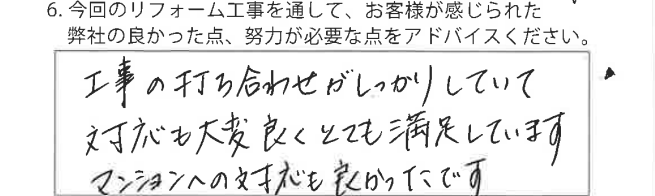 6. 今回のリフォーム工事を通して、お客様が感じられた
弊社の良かった点、努力が必要な点をアドバイスください。
工事の打ち合わせがしっかりしていて
対応も大変良くとても満足しています
マンションへの対応も良かったです